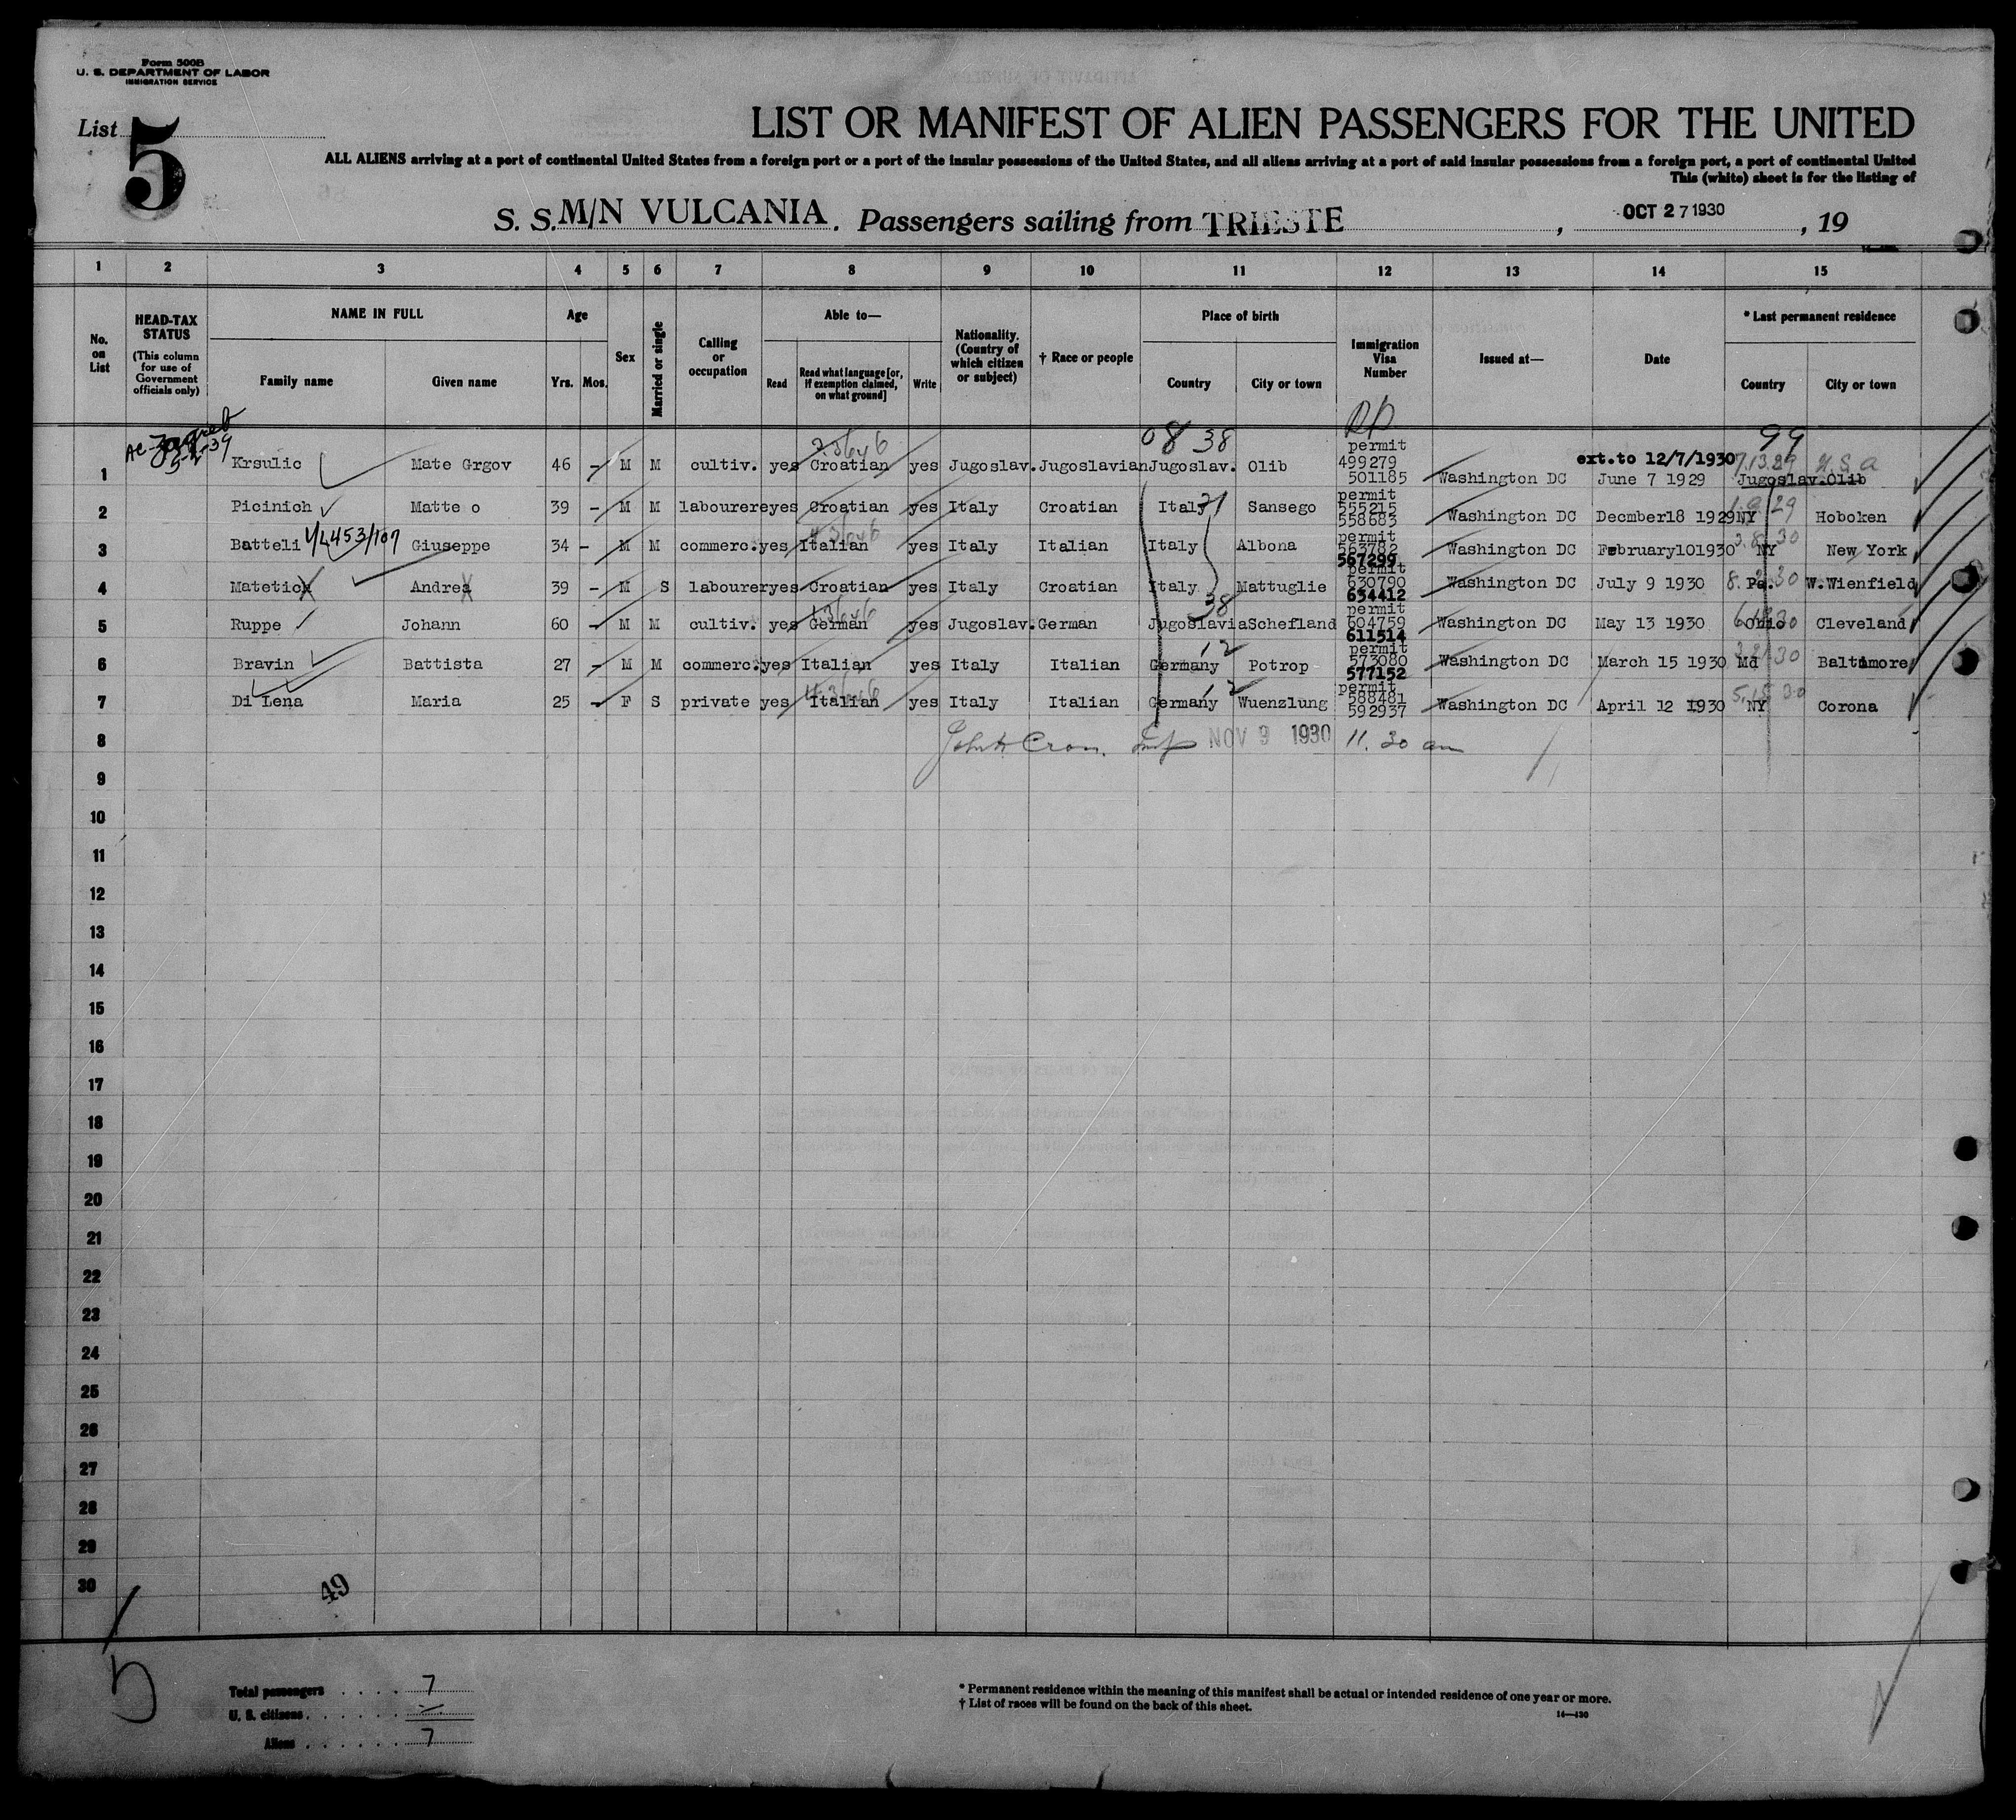 Form 500B
U. S. DEPARTMENT OF LABOR
IMMIGRATION SERVICE
List 5
LIST OR MANIFEST OF ALIEN PASSENGERS FOR THE UNITED
ALL ALIENS arriving at a port of continental United States from a foreign port or a port of the insular possessions of the United States, and all aliens arriving at a port of said insular possessions from a foreign port, a port of continental United
This (white) sheet is for the listing of
S. S. M/N VULCANIA. Passengers sailing from TRIESTE, OCT 27 1930, 19
1 2 3 4 5 6 7 8 9 10 11 12 13 14 15
No. on List
HEAD-TAX STATUS (This column for use of Government officials only)
NAME IN FULL
Family name Given name
Age
Yrs. Mos.
Sex
Married or single
Calling or occupation
Able to—
Read Read what language [or, if exemption claimed, on what ground] Write
Nationality. (Country of which citizen or subject)
† Race or people
Place of birth
Country City or town
Immigration Visa Number
Issued at—
Date
* Last permanent residence
Country City or town
08 38 99
1 Krsulic Mate Grgov 46 - M M cultiv. yes Croatian yes Jugoslav. Jugoslavian Jugoslav. Olib permit 499279 501185 Washington DC ext.to 12/7/1930 June 7 1929 7.13.29 U.S.A Jugoslav.Olib
2 Picinich Matte o 39 - M M labourer yes Croatian yes Italy Croatian Italy 21 Sansego permit 555215 558683 Washington DC Decmber18 1929 NY Hoboken
3 Batteli V/L453/107 Giuseppe 34 - M M commerc. yes Italian yes Italy Italian Italy Albona permit 563782 567299 Washington DC February101930 NY New York
4 Matetick Andrea 39 - M S labourer yes Croatian yes Italy Croatian Italy Mattuglie permit 630790 634412 Washington DC July 9 1930 Pa. W.Wienfield
5 Ruppe Johann 60 - M M cultiv. yes German yes Jugoslav. German Jugoslavia 38 Schefland permit 604759 611514 Washington DC May 13 1930 Ohio Cleveland
6 Bravin Battista 27 - M M commerc. yes Italian yes Italy Italian Germany 12 Potrop permit 573080 577152 Washington DC March 15 1930 Md Baltimore
7 Di Lena Maria 25 - F S private yes Italian yes Italy Italian Germany 12 Wuenzlung permit 588481 592937 Washington DC April 12 1930 NY Corona
8 John H Cron. Insp NOV 9 1930 11.30 am
9
10
11
12
13
14
15
16
17
18
19
20
21
22
23
24
25
26
27
28
29
30
49
5
Total passengers . . . . 7
U. S. citizens . . . . . . -
Aliens . . . . . . 7
* Permanent residence within the meaning of this manifest shall be actual or intended residence of one year or more.
† List of races will be found on the back of this sheet.
14—430